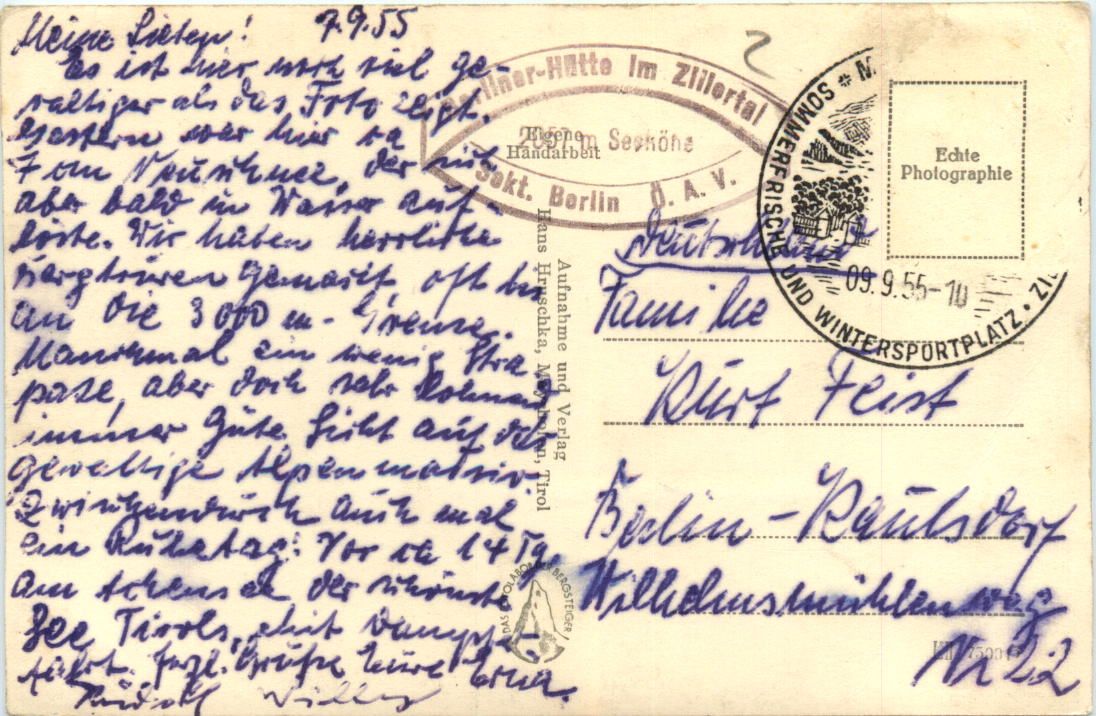 Meine Lieben! 7.9.55
Es ist hier noch viel ge-
waltiger als das Foto zeigt.
Gestern war hier ca
7 cm Neuschnee, der sich
aber bald in Wasser auf-
löste. Wir haben herrliche
Bergtouren gemacht oft bis
an die 3000 m-Grenze.
Manchmal ein wenig Stra-
paze, aber doch sehr lohnend
immer gute Sicht auf das
gewaltige Alpenmassiv
Zwischendurch auch mal
ein Ruhetag. Vor ca 14 Tg.
am Achensee der schönste
See Tirols, mit Dampfer-
fahrt. Herzl. Grüße Eure Erna.
Rudolf Willy
Berliner-Hütte im Zillertal
2057 m Seehöhe
Sekt. Berlin Ö. A. V.
Eigene
Handarbeit
Aufnahme und Verlag
Hans Hruschka, Mayrhofen, Tirol
DAS FOTOLABOR DER BERGSTEIGER
2
SOMMERFRISCHE UND WINTERSPORTPLATZ · ZI
09.9.55-10
Echte
Photographie
Deutschland
Familie
Kurt Feist
Berlin-Kaulsdorf
Wilhelmsmühlenweg
Nr 22